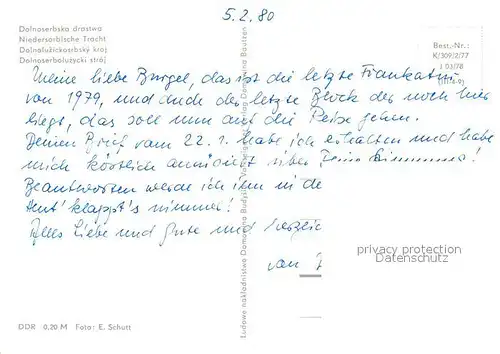 5.2.80
Dolnoserbska drastwa
Niedersorbische Tracht
Dolnołužickosrbský kroj
Dolnoserbołużycki strój
Best.-Nr.:
K/309/2/77
J 03/78
Meine liebe Burgel, das ist die letzte Frankatur
von 1979, und auch der letzte Block der noch hier
liegt, das soll nun auf die Reise gehen.
Deinen Brief vom 22.1. habe ich erhalten und habe
mich köstlich amüsiert über
Beantworten werde ich ihn in de
Heut' klappt's nimmer!
Alles Liebe und Gute und herzlic
von
privacy protection
Datenschutz
DDR 0,20 M Foto: E. Schutt
Ludowe nakładnistwo Domowina Budyšin · VEB Domowina-Verlag Bautzen